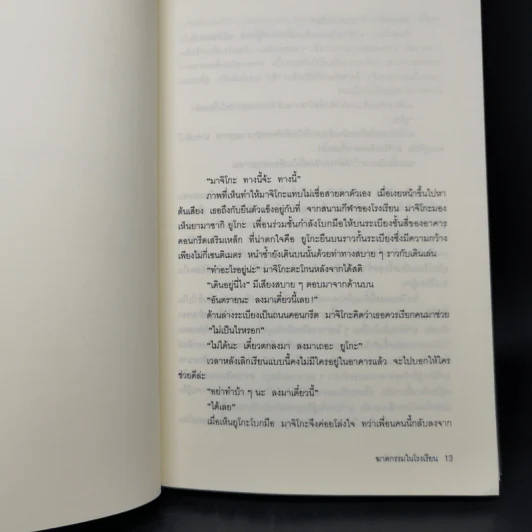 "มาจิโกะ ทางนี้จ้ะ ทางนี้"
ภาพที่เห็นทำให้มาจิโกะแทบไม่เชื่อสายตาตัวเอง เมื่อเงยหน้าขึ้นไปหา
ต้นเสียง เธอถึงกับยืนตัวแข็งอยู่กับที่ จากสนามกีฬาของโรงเรียน มาจิโกะมอง
เห็นยามาซากิ ยูโกะ เพื่อนร่วมชั้นกำลังโบกมือให้บนระเบียงชั้นสี่ของอาคาร
คอนกรีตเสริมเหล็ก ที่น่าตกใจคือ ยูโกะยืนบนราวกั้นระเบียงซึ่งมีความกว้าง
เพียงไม่กี่เซนติเมตร หนำซ้ำยังเดินบนนั้นด้วยท่าทางสบาย ๆ ราวกับเดินเล่น
"ทำอะไรอยู่น่ะ" มาจิโกะตะโกนหลังจากได้สติ
"เดินอยู่นี่ไง" มีเสียงสบาย ๆ ตอบมาจากด้านบน
"อันตรายนะ ลงมาเดี๋ยวนี้เลย!"
ด้านล่างระเบียงเป็นถนนคอนกรีต มาจิโกะคิดว่าเธอควรเรียกคนมาช่วย
"ไม่เป็นไรหรอก"
"ไม่ได้นะ เดี๋ยวตกลงมา ลงมาเถอะ ยูโกะ"
เวลาหลังเลิกเรียนแบบนี้คงไม่มีใครอยู่ในอาคารแล้ว จะไปบอกให้ใคร
ช่วยดีล่ะ
"อย่าทำบ้า ๆ นะ ลงมาเดี๋ยวนี้"
"ได้เลย"
เมื่อเห็นยูโกะโบกมือ มาจิโกะจึงค่อยโล่งใจ ทว่าเพื่อนคนนี้กลับลงจาก
ฆาตกรรมในโรงเรียน 13